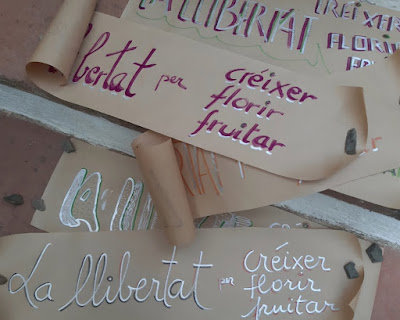 LA LLIBERTAT
CRÉIXER
FLORIR
llibertat per
créixer
florir
fruitar
La llibertat per
Créixer
florir
fruitar